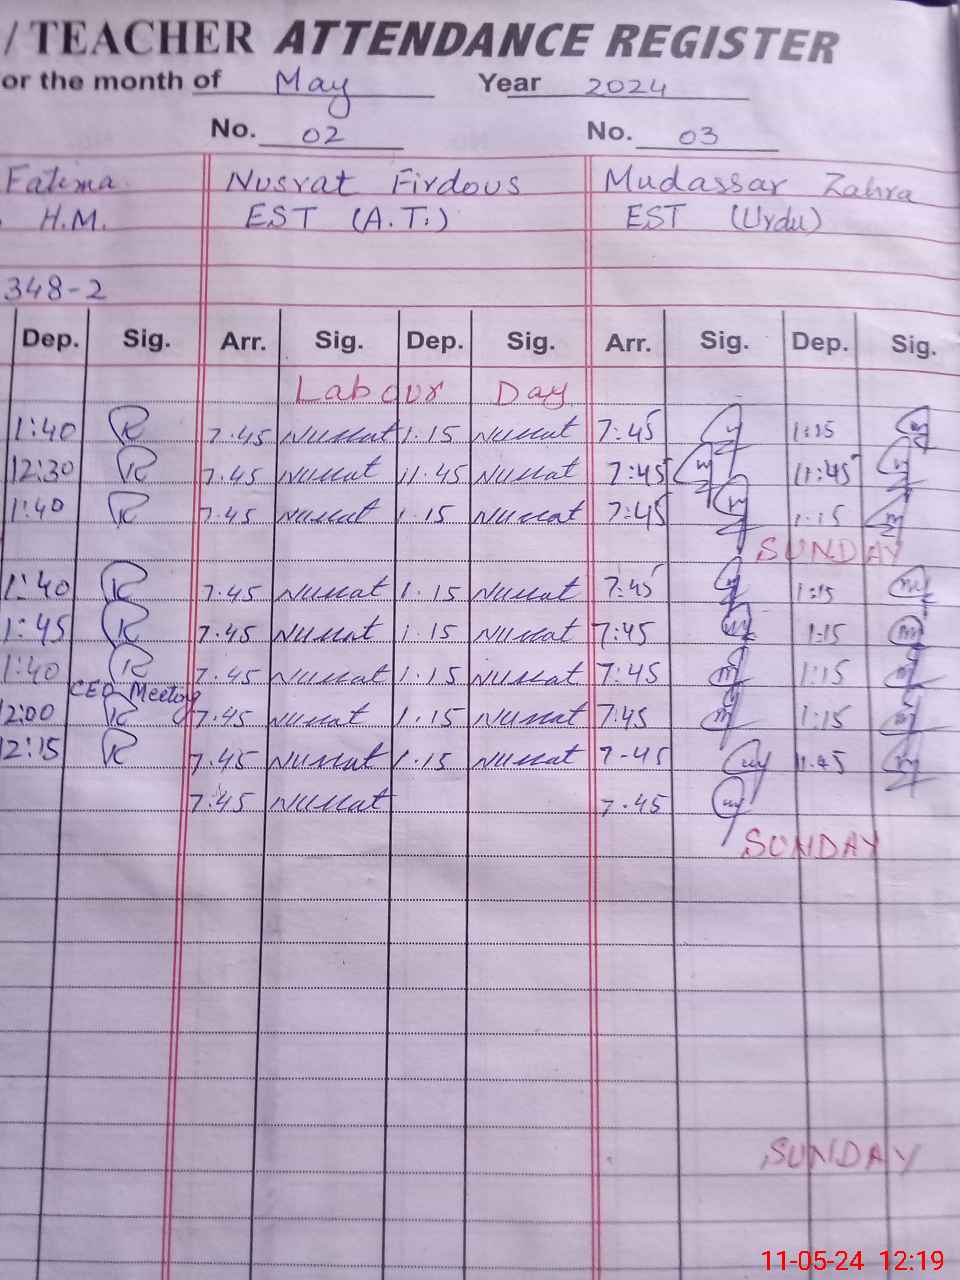 / TEACHER ATTENDANCE REGISTER
or the month of May Year 2024
No. 02 No. 03
Fatima Nusrat Firdous Mudassar Zahra
H.M. EST (A.T.) EST (Urdu)
348-2
Dep. Sig. Arr. Sig. Dep. Sig. Arr. Sig. Dep. Sig.
Labour Day
1:40 7.45 Nusrat 1.15 Nusrat 7:45 1:15
12:30 7.45 Nusrat 11.45 Nusrat 7:45 11:45
1:40 7.45 Nusrat 1.15 Nusrat 7:45 1.15
SUNDAY
1:40 7.45 Nusrat 1.15 Nusrat 7:45 1:15
1:45 7.45 Nusrat 1.15 Nusrat 7:45 1:15
1:40 7.45 Nusrat 1.15 Nusrat 7:45 1:15
CEO Meeting
2:00 7.45 Nusrat 1.15 Nusrat 7:45 1:15
2:15 7.45 Nusrat 1.15 Nusrat 7-45 1.45
7.45 Nusrat 7.45
SUNDAY
SUNDAY
11-05-24 12:19